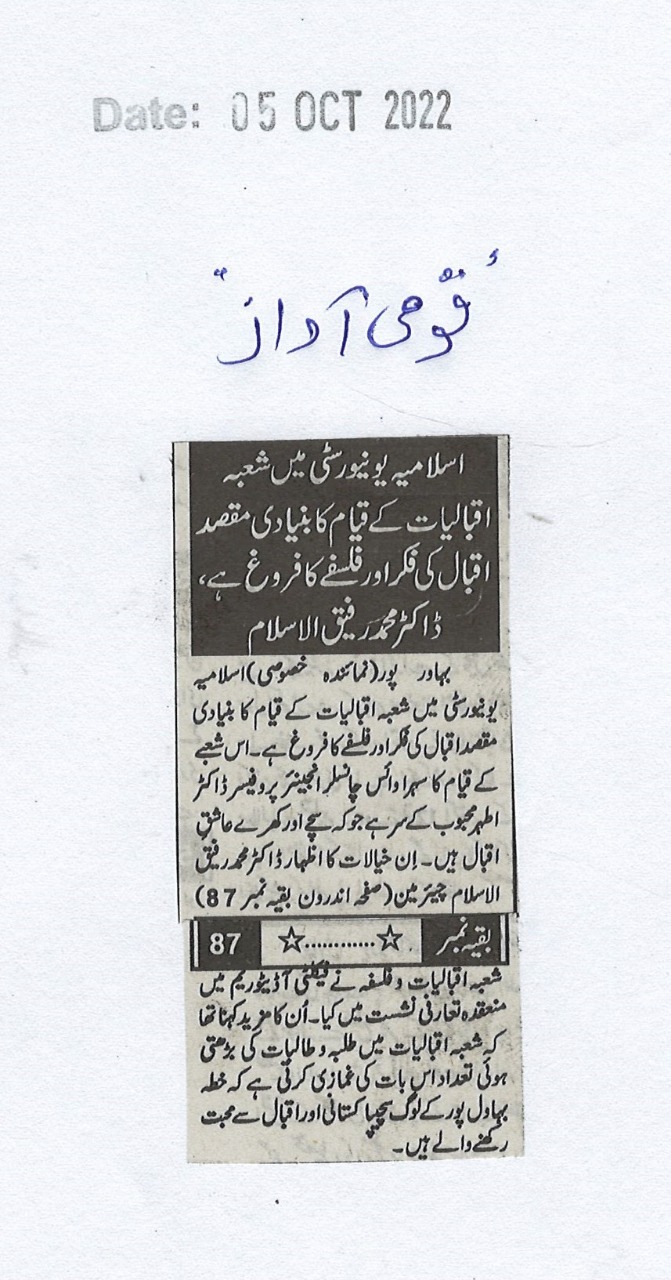 Date: 05 OCT 2022
"قومی آواز"
اسلامیہ یونیورسٹی میں شعبہ
اقبالیات کے قیام کا بنیادی مقصد
اقبال کی فکر اور فلسفے کا فروغ ہے،
ڈاکٹر محمد رفیق الاسلام
بہاور پور(نمائندہ خصوصی)اسلامیہ
یونیورسٹی میں شعبہ اقبالیات کے قیام کا بنیادی
مقصد اقبال کی فکر اور فلسفے کا فروغ ہے۔اس شعبے
کے قیام کا سہرا وائس چانسلر انجینئر پروفیسر ڈاکٹر
اطہر محبوب کے سر ہے جو کہ سچے اور کھرے عاشقِ
اقبال ہیں۔ اِن خیالات کا اظہار ڈاکٹر محمد رفیق
الاسلام چیئر مین(صفحہ اندرون بقیہ نمبر 87)
بقیہ نمبر ☆............☆ 87
شعبہ اقبالیات و فلسفہ نے فیکلٹی آڈیٹوریم میں
منعقدہ تعارفی نشست میں کیا۔ اُن کا مزید کہنا تھا
کہ شعبہ اقبالیات میں طلبہ و طالبات کی بڑھتی
ہوئی تعداد اس بات کی غمازی کرتی ہے کہ خطہ
بہاول پور کے لوگ سچے پاکستانی اور اقبال سے محبت
رکھنے والے ہیں۔